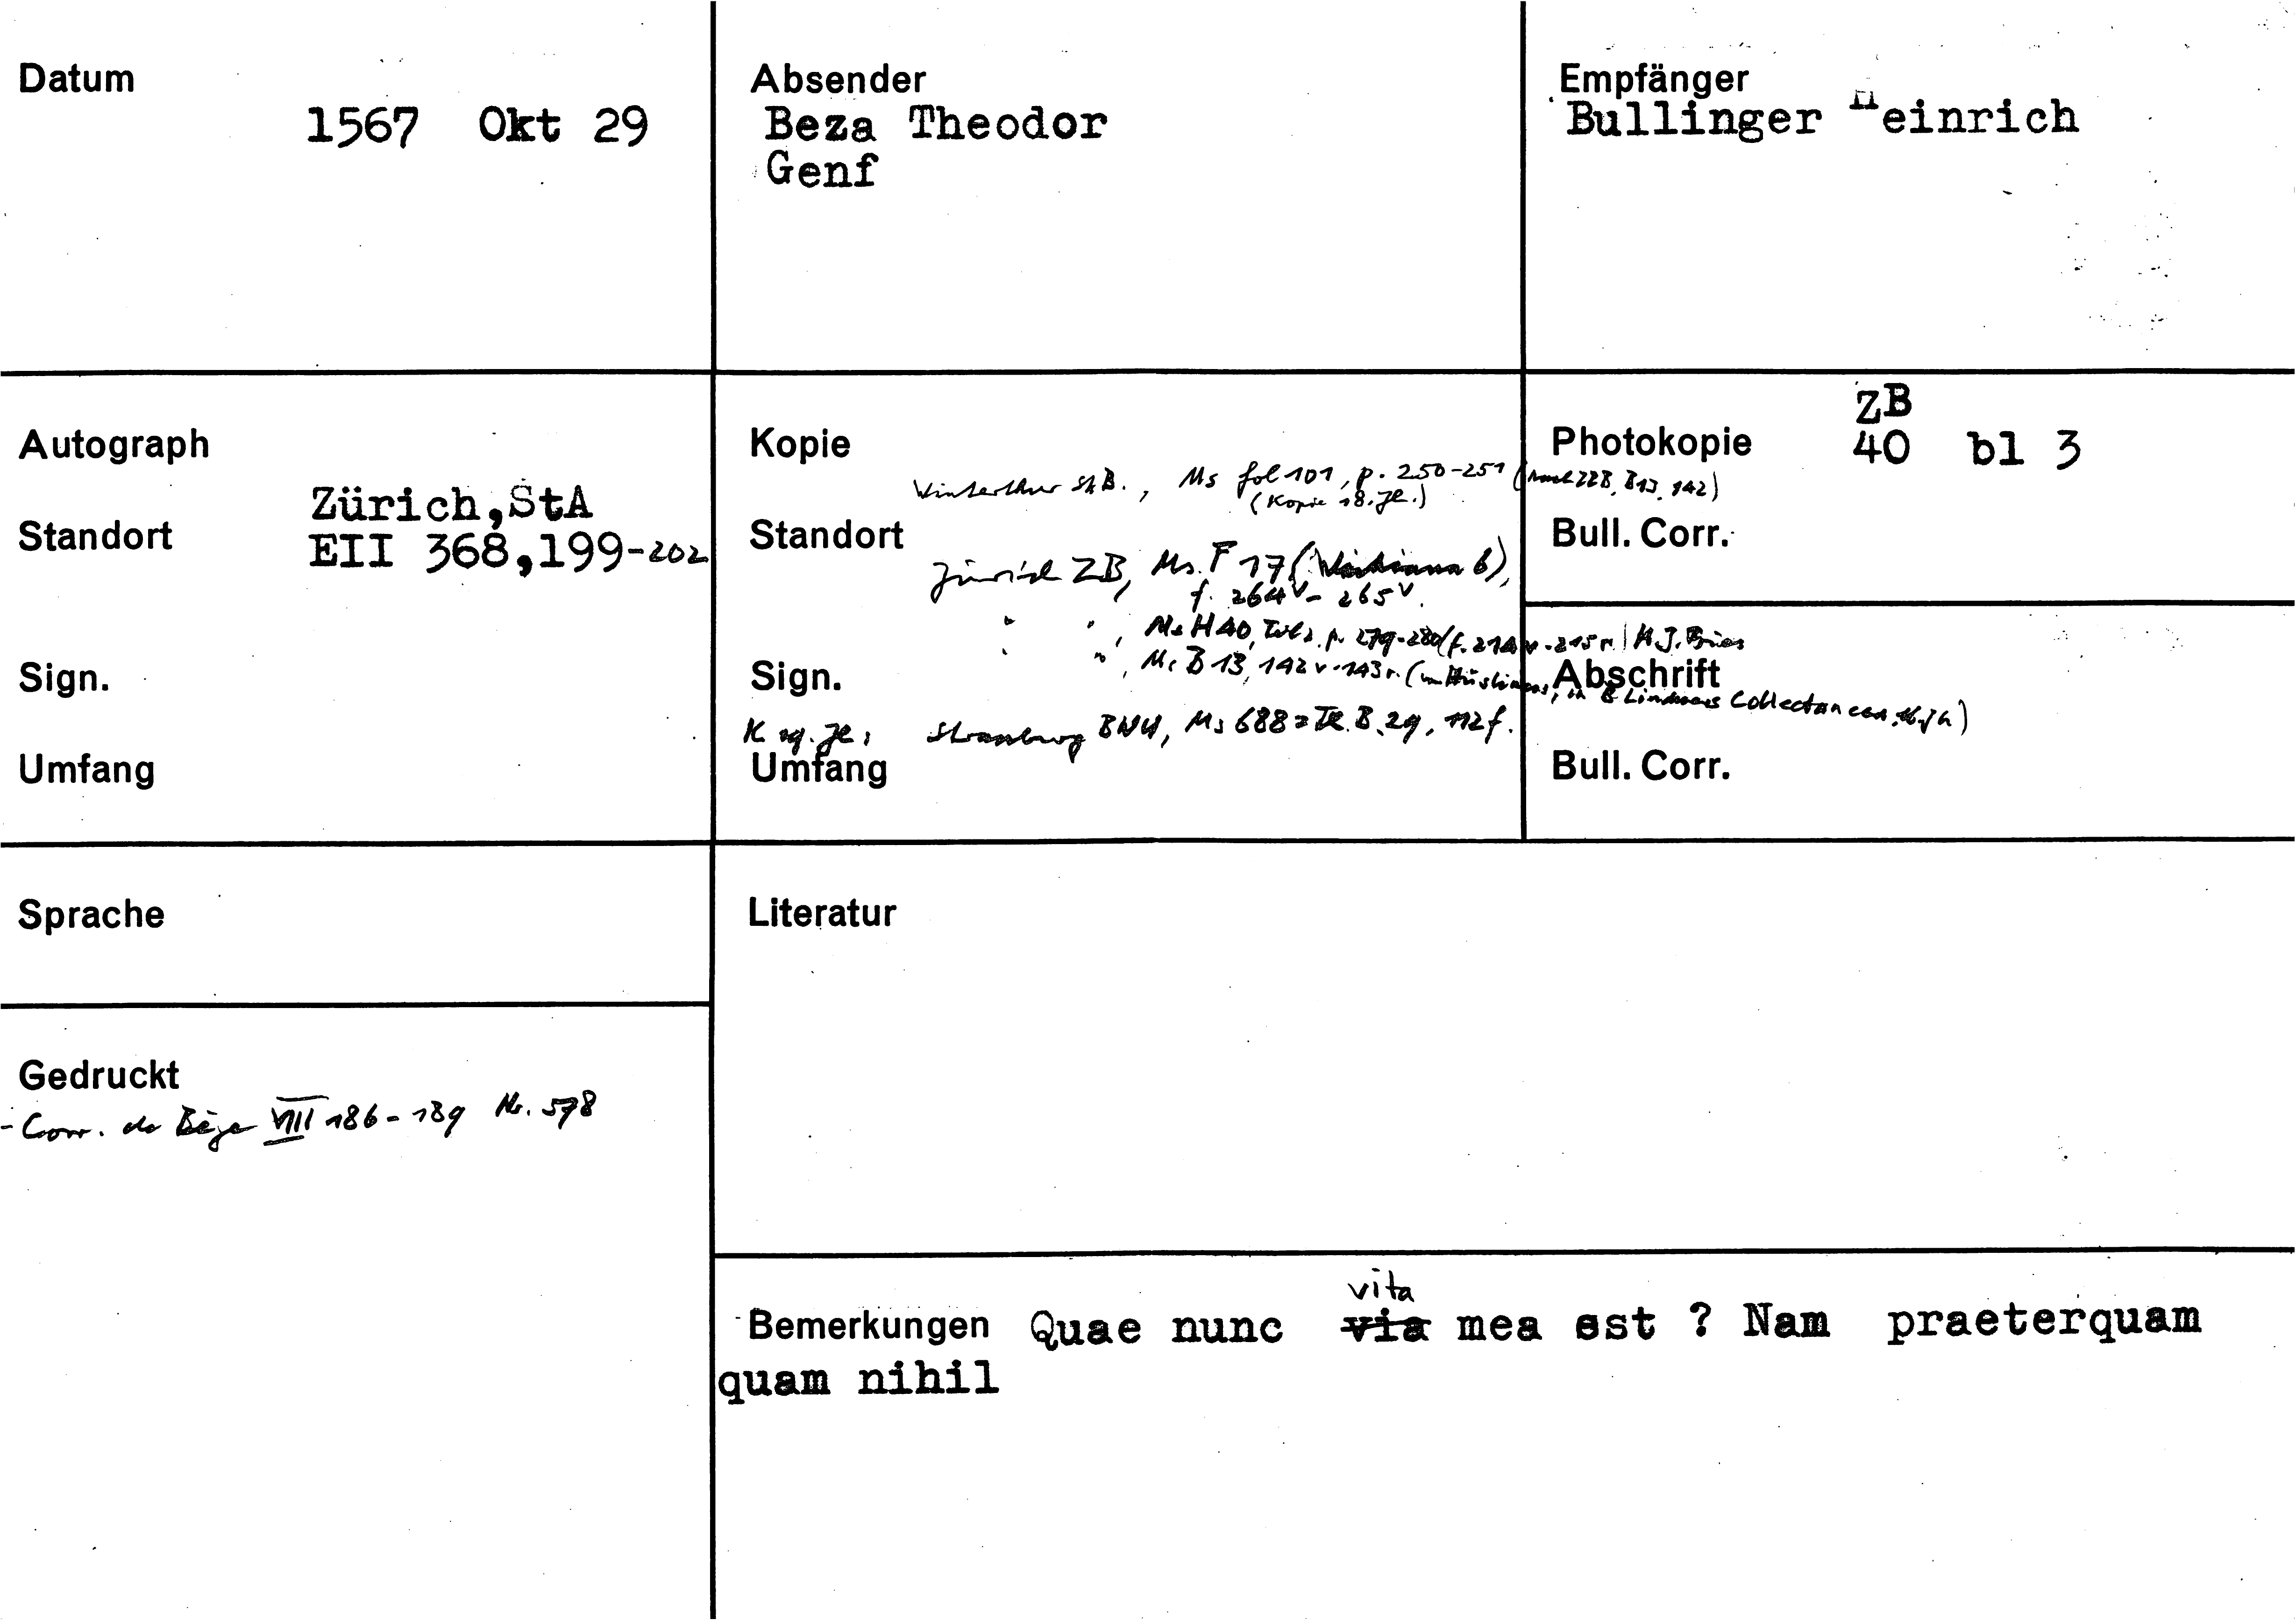 Datum
1567 Okt 29
Absender
Beza Theodor
Genf
Empfänger
Bullinger Heinrich
Autograph
Standort
Zürich, StA
EII 368,199-202
Sign.
Umfang
Kopie
Winterthur StB., Ms fol 101, p. 250-251 (
B13, 142)
(Kopie 18. Jh.)
Standort
Zürich ZB, Ms. F 17 (Wickiana 6),
f. 264v - 265v.
" ", Ms H 40, p. 279-280 (f. 214v-215r)
" ", Ms B 13, 142v-143r. (
in B Lindners Collectaneen, 16. Jh)
Sign.
K 19. Jh: Strassburg BNU, Ms 688 = Th. B. 29, 112f.
Umfang
Photokopie
ZB
40 bl 3
Bull. Corr.
Abschrift
Bull. Corr.
Sprache
Literatur
Gedruckt
- Corr. de Bèze VIII 186-189 Nr. 578
vita
Bemerkungen Quae nunc via mea est ? Nam praeterquam
quam nihil